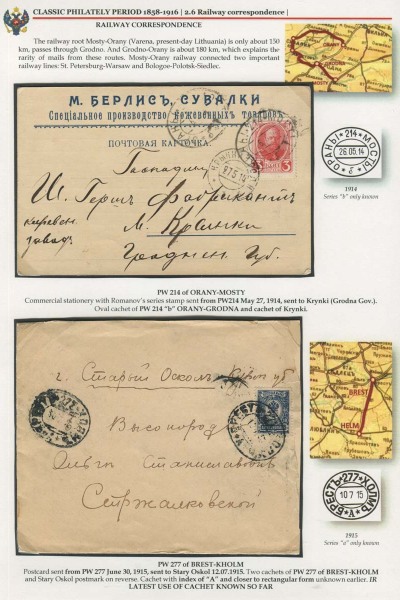 CLASSIC PHILATELY PERIOD 1858-1916 | 2.6 Railway correspondence
RAILWAY CORRESPONDENCE
The railway root Mosty-Orany (Varena, present-day Lithuania) is only about 150
km, passes through Grodno. And Grodno-Orany is about 180 km, which explains the
rarity of mails from these routes. Mosty-Orany railway connected two important
railway lines: St. Petersburg-Warsaw and Bologne-Polotsk-Siedlec.
ORANY
GRODNA
М. БЕРЛИСЪ, СУВАЛКИ
Спеціальное производство кожевенныхъ товаровъ.
ПОЧТОВАЯ КАРТОЧКА.
Господину
Ш. Гершъ Фабрикантъ
кожевен. м. Крынки
заводъ
Гроднен. Губ.
ОРАНЫ *214* МОСТЫ
26.05.14
"б"
1914
Series "b" only known
PW 214 of ORANY-MOSTY
Commercial stationery with Romanov's series stamp sent from PW214 May 27, 1914, sent to Krynki (Grodna Gov.).
Oval cachet of PW 214 "b" ORANY-GRODNA and cachet of Krynki.
г. Старый Осколъ Курск. губ
Высокород.
Ольгѣ Станиславовнѣ
Стржалковской
BREST
HELM
БРЕСТЪ *277* ХОЛМЪ
10 7 15
"А"
1915
Series "a" only known
PW 277 of BREST-KHOLM
Postcard sent from PW 277 June 30, 1915, sent to Stary Oskol 12.07.1915. Two cachets of PW 277 of BREST-KHOLM
and Stary Oskol postmark on reverse. Cachet with index of "A" and closer to rectangular form unknown earlier. IR
LATEST USE OF CACHET KNOWN SO FAR